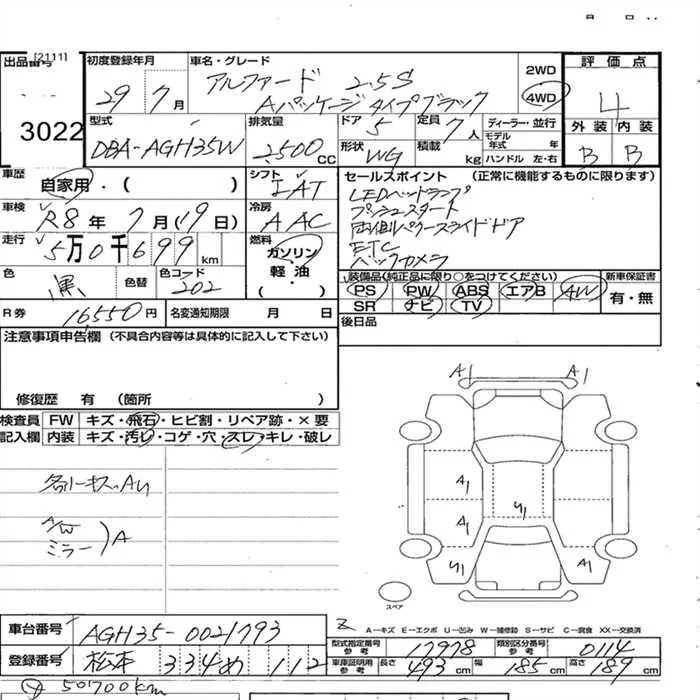 出品番号 [2111]
3022
初度登録年月
29 7月
車名・グレード
アルファード 2.5S
Aパッケージ タイプブラック
2WD
4WD
評価点
4
外装 内装
B B
型式
DBA-AGH35W
排気量
2500cc
ドア 5
定員 7人
形状 WG
積載 kg
ディーラー・並行
モデル年式 年式
ハンドル 左・右
車歴
自家用・( )
シフト
IAT
車検
R8年 7月(19日)
冷房
AAC
走行
5万0千699km
燃料
ガソリン
軽・油
( )
色
黒
色替
色コード
202
R券 16550円
名変通知期限 月 日
セールスポイント (正常に機能するものに限ります)
LEDヘッドランプ
プッシュスタート
両側パワースライドドア
ETC
バックカメラ
装備品(純正品に限り○をつけてください)
PS PW ABS エアB AW
SR ナビ TV
新車保証書
有・無
後日品
注意事項申告欄 (不具合内容等は具体的に記入して下さい)
修復歴 有 (箇所 )
検査員記入欄
FW キズ・飛石・ヒビ割・リペア跡・×要
内装 キズ・汚レ・コゲ・穴・スレ・キレ・破レ
A/W
ミラー )A
A1 A1
A1
A1
U1
U1
A1
スペア
A-キズ E-エクボ U-凹み W-補修跡 S-サビ C-腐食 XX-交換済
車台番号 AGH35-0021793
登録番号 松本 334め 112
型式指定番号 参考 17978
類別区分番号 参考 0114
車庫証明用 参考 長さ 493cm 幅 185cm 高さ 189
50700km